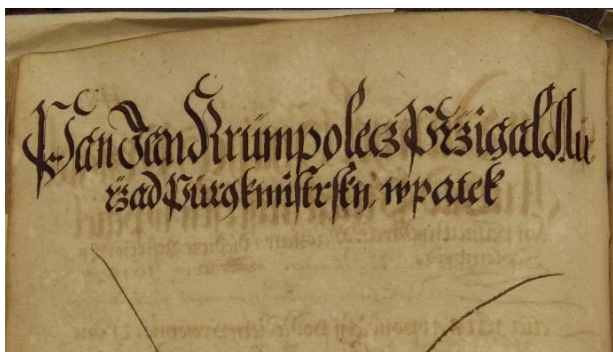 Pan Jan Krumpolecz Przigal Au
rzad Purgkmistrsky w patek